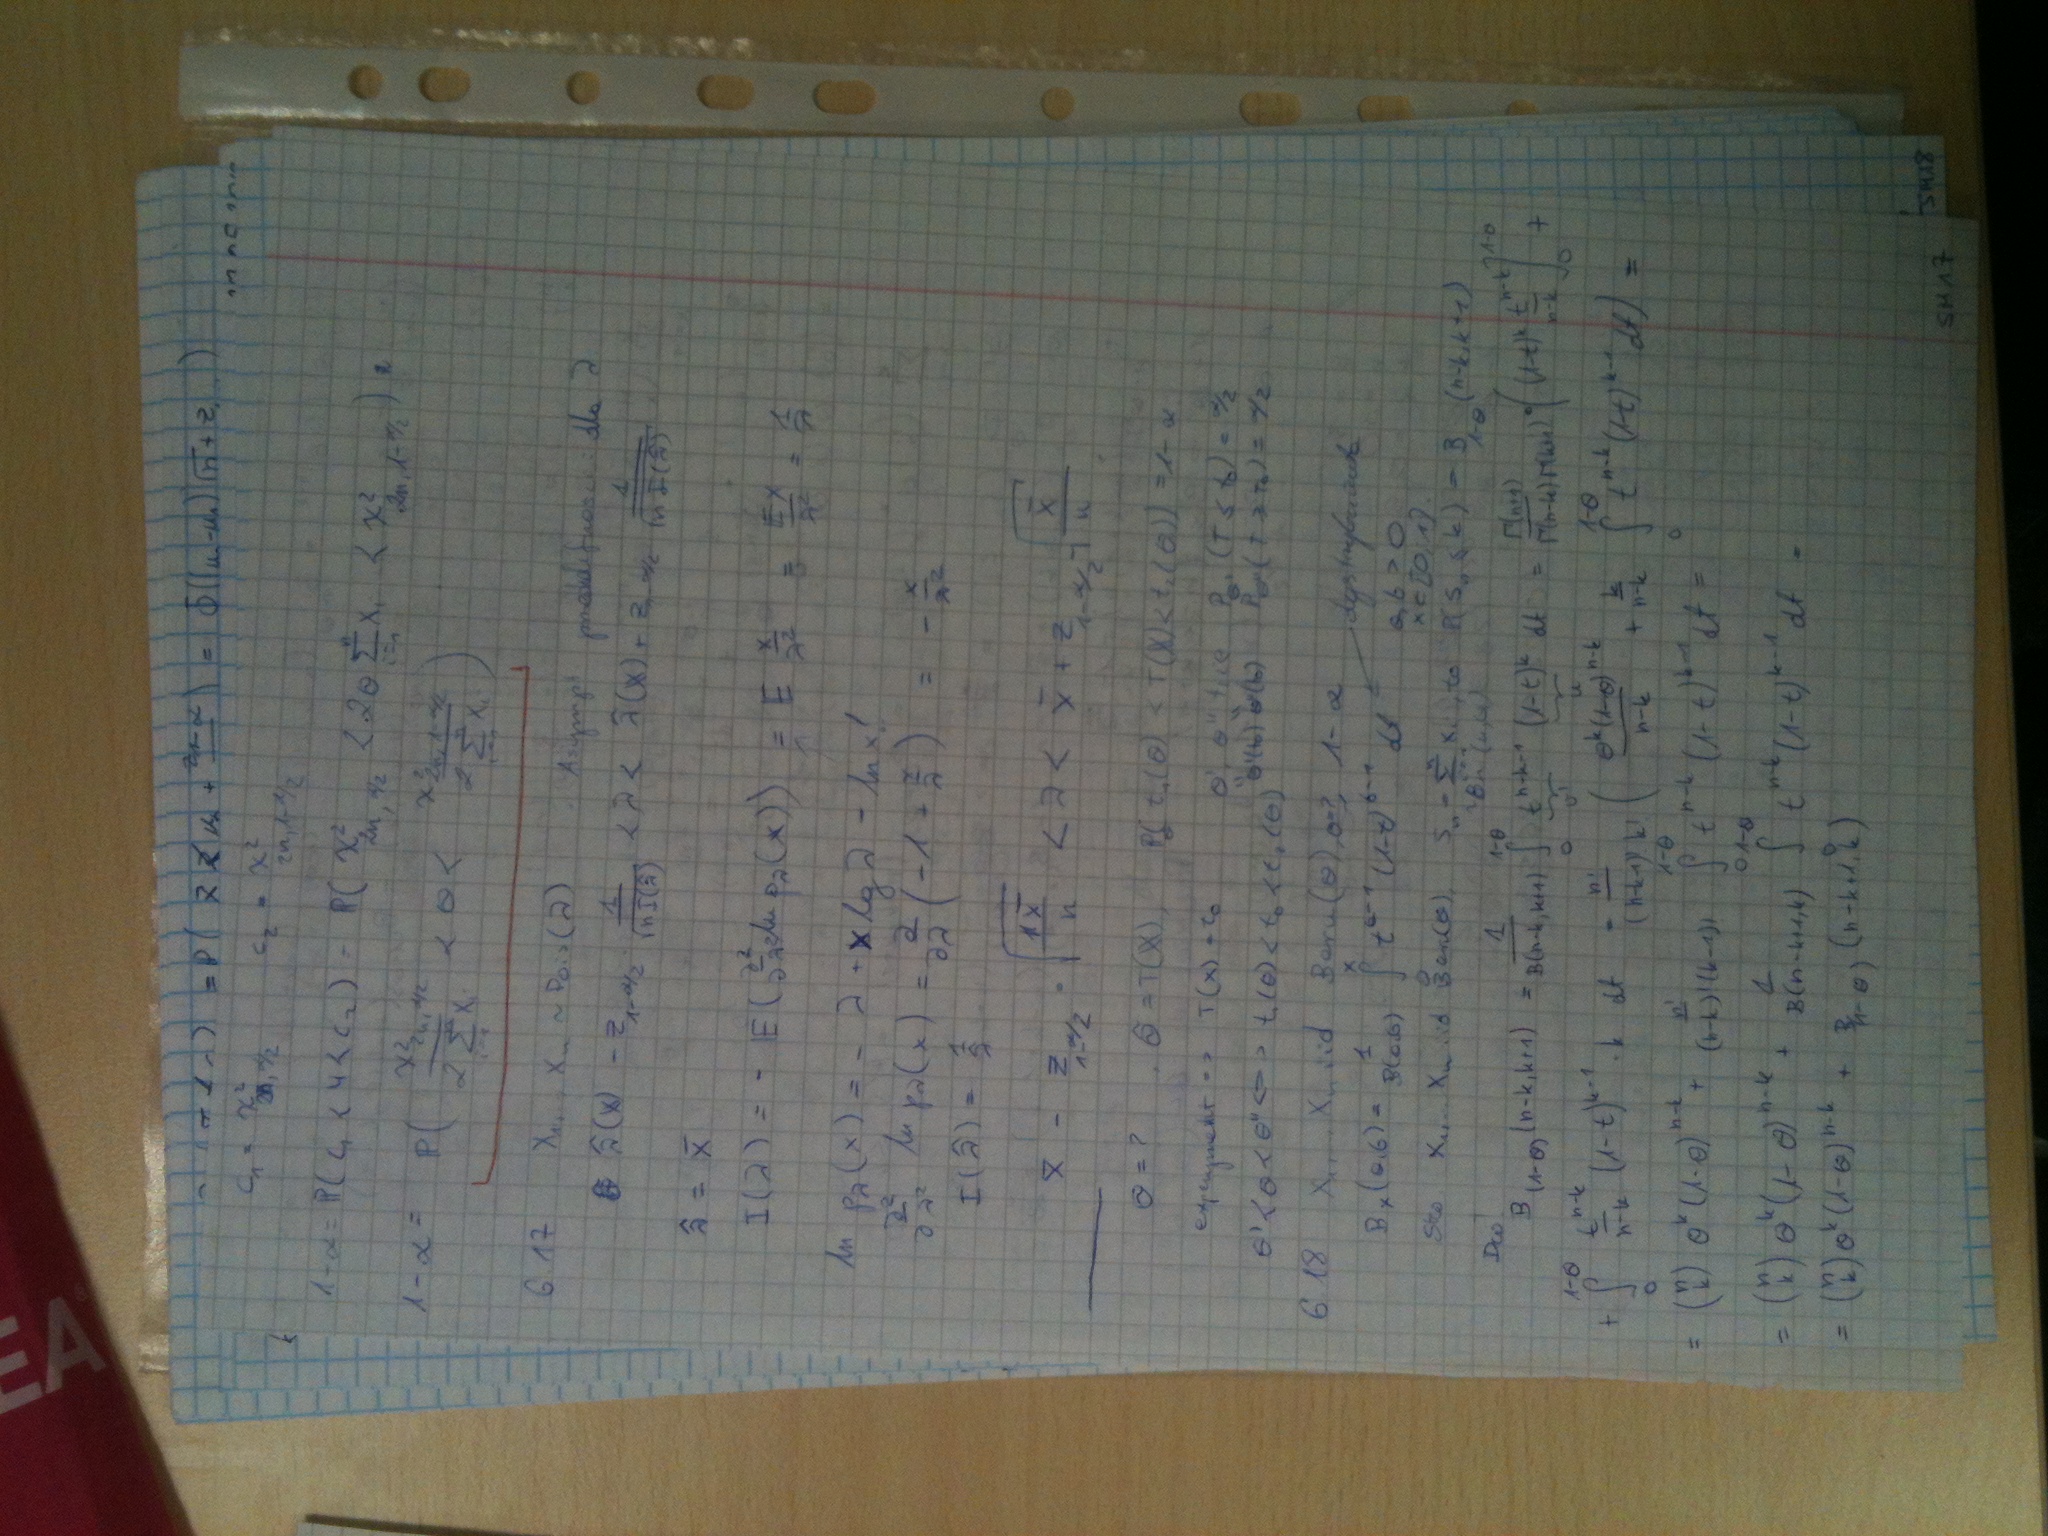 EA
= P( Z < μ₂ + ) = Φ((μ₁-μ₂)√n + z
c₁ = χ²_{2n, α/2}   c₂ = χ²_{2n, 1-α/2}
1-α = P( c₁ < U < c₂ ) = P( χ²_{2n, α/2} < 2θ Σ_{i=1}^n Xᵢ < χ²_{2n, 1-α/2} ) =
1-α = P( χ²_{2n, α/2} / (2 Σ_{i=1}^n Xᵢ) < θ < χ²_{2n, 1-α/2} / (2 Σ_{i=1}^n Xᵢ) )
6.17 X₁,... Xₙ ~ Pois(λ) Asympt dla λ
λ̂(X) - z_{1-α/2} · 1/√(nI(λ̂)) < λ < λ̂(X) + z_{1-α/2} 1/√(nI(λ̂))
λ̂ = X̄
I(λ) = - E( ∂²/∂λ² ln p_λ(X) ) = E X/λ² = EX/λ² = 1/λ
ln p_λ(x) = - λ + x lg λ - ln x!
∂²/∂λ² ln p_λ(x) = ∂/∂λ ( -1 + x/λ ) = - x/λ²
I(λ̂) = 1/λ̂
X̄ - z_{1-α/2} · √(X̄/n) < λ < X̄ + z_{1-α/2} √(X̄/n)
θ = ? θ̂ = T(X), P_θ( t₁(θ) < T(X) < t₂(θ) ) = 1-α
experyment => T(x) = t₀ θ', θ'' t.że P_θ'(T ≤ t₀) = α/2
θ'(t₀) θ''(t₀) P_θ''(T ≥ t₀) = α/2
θ' < θ < θ'' <=> t₁(θ) < t₀ < t₂(θ)
6.18 X₁,... Xₙ iid Bern(θ), θ=?, 1-α
dystrybuanta
Bₓ(a,b) = 1/B(a,b) ∫₀ˣ t^{a-1} (1-t)^{b-1} dt a,b > 0
x ∈ [0,1].
X₁,... Xₙ iid Bern(θ), Sₙ = Σ_{i=1}^n Xᵢ, to P(Sₙ ≤ k) = B_{1-θ}(n-k, k+1)
Dow
B_{(1-θ)}(n-k, k+1) = 1/B(n-k, k+1) ∫₀^{1-θ} t^{n-k-1} (1-t)^k dt = Γ(n+1)/(Γ(n-k)Γ(k+1)) · ( (1-t)^k t^{n-k}/(n-k) ]₀^{1-θ} +
v' u
+ ∫₀^{1-θ} t^{n-k}/(n-k) (1-t)^{k-1} · k dt = n!/((n-k-1)! k!) ( θ^k(1-θ)^{n-k}/(n-k) + k/(n-k) ∫₀^{1-θ} t^{n-k} (1-t)^{k-1} dt ) =
= (n k) θ^k (1-θ)^{n-k} + n!/((n-k)!(k-1)!) ∫₀^{1-θ} t^{n-k} (1-t)^{k-1} dt =
= (n k) θ^k (1-θ)^{n-k} + 1/B(n-k+1, k) ∫₀^{1-θ} t^{n-k} (1-t)^{k-1} dt =
= (n k) θ^k (1-θ)^{n-k} + B_{(1-θ)}(n-k+1, k)
SM17
SM18